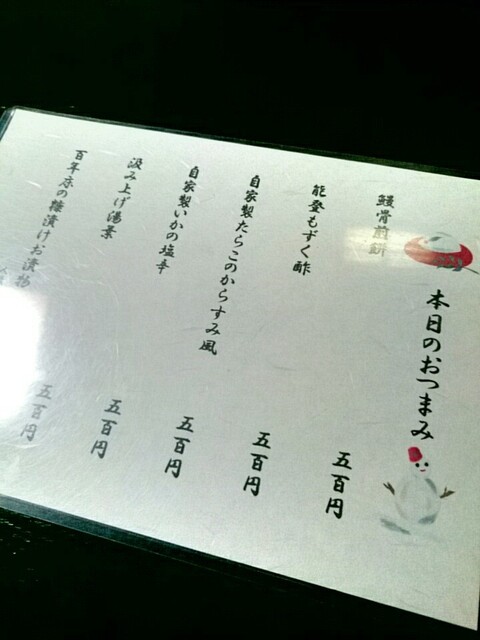 本日のおつまみ
鰻骨煎餅 五百円
能登もずく酢 五百円
自家製たらこのからすみ風 五百円
自家製いかの塩辛 五百円
汲み上げ湯葉 五百円
百年床の糠漬けお漬物